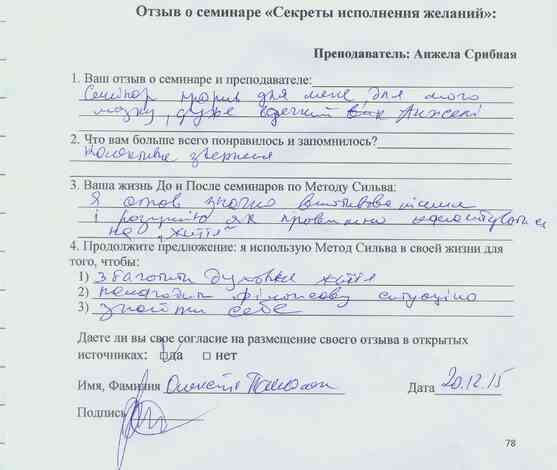 Отзыв о семинаре «Секреты исполнения желаний»:
Преподаватель: Анжела Срибная
1. Ваш отзыв о семинаре и преподавателе:
Семінар прорив для мене, для мого
мозку, дуже вдячний Анжелі
2. Что вам больше всего понравилось и запомнилось?
Колективне звернення
3. Ваша жизнь До и После семинаров по Методу Сильва:
Я став значно
і розумію як правильно
на „життя"
4. Продолжите предложение: я использую Метод Сильва в своей жизни для
того, чтобы:
1) збагатити духовне життя
2) фінансову ситуацію
3) знайти себе
Даете ли вы свое согласие на размещение своего отзыва в открытых
источниках: да нет
Имя, Фамилия
Дата 20.12.15
Подпись
78